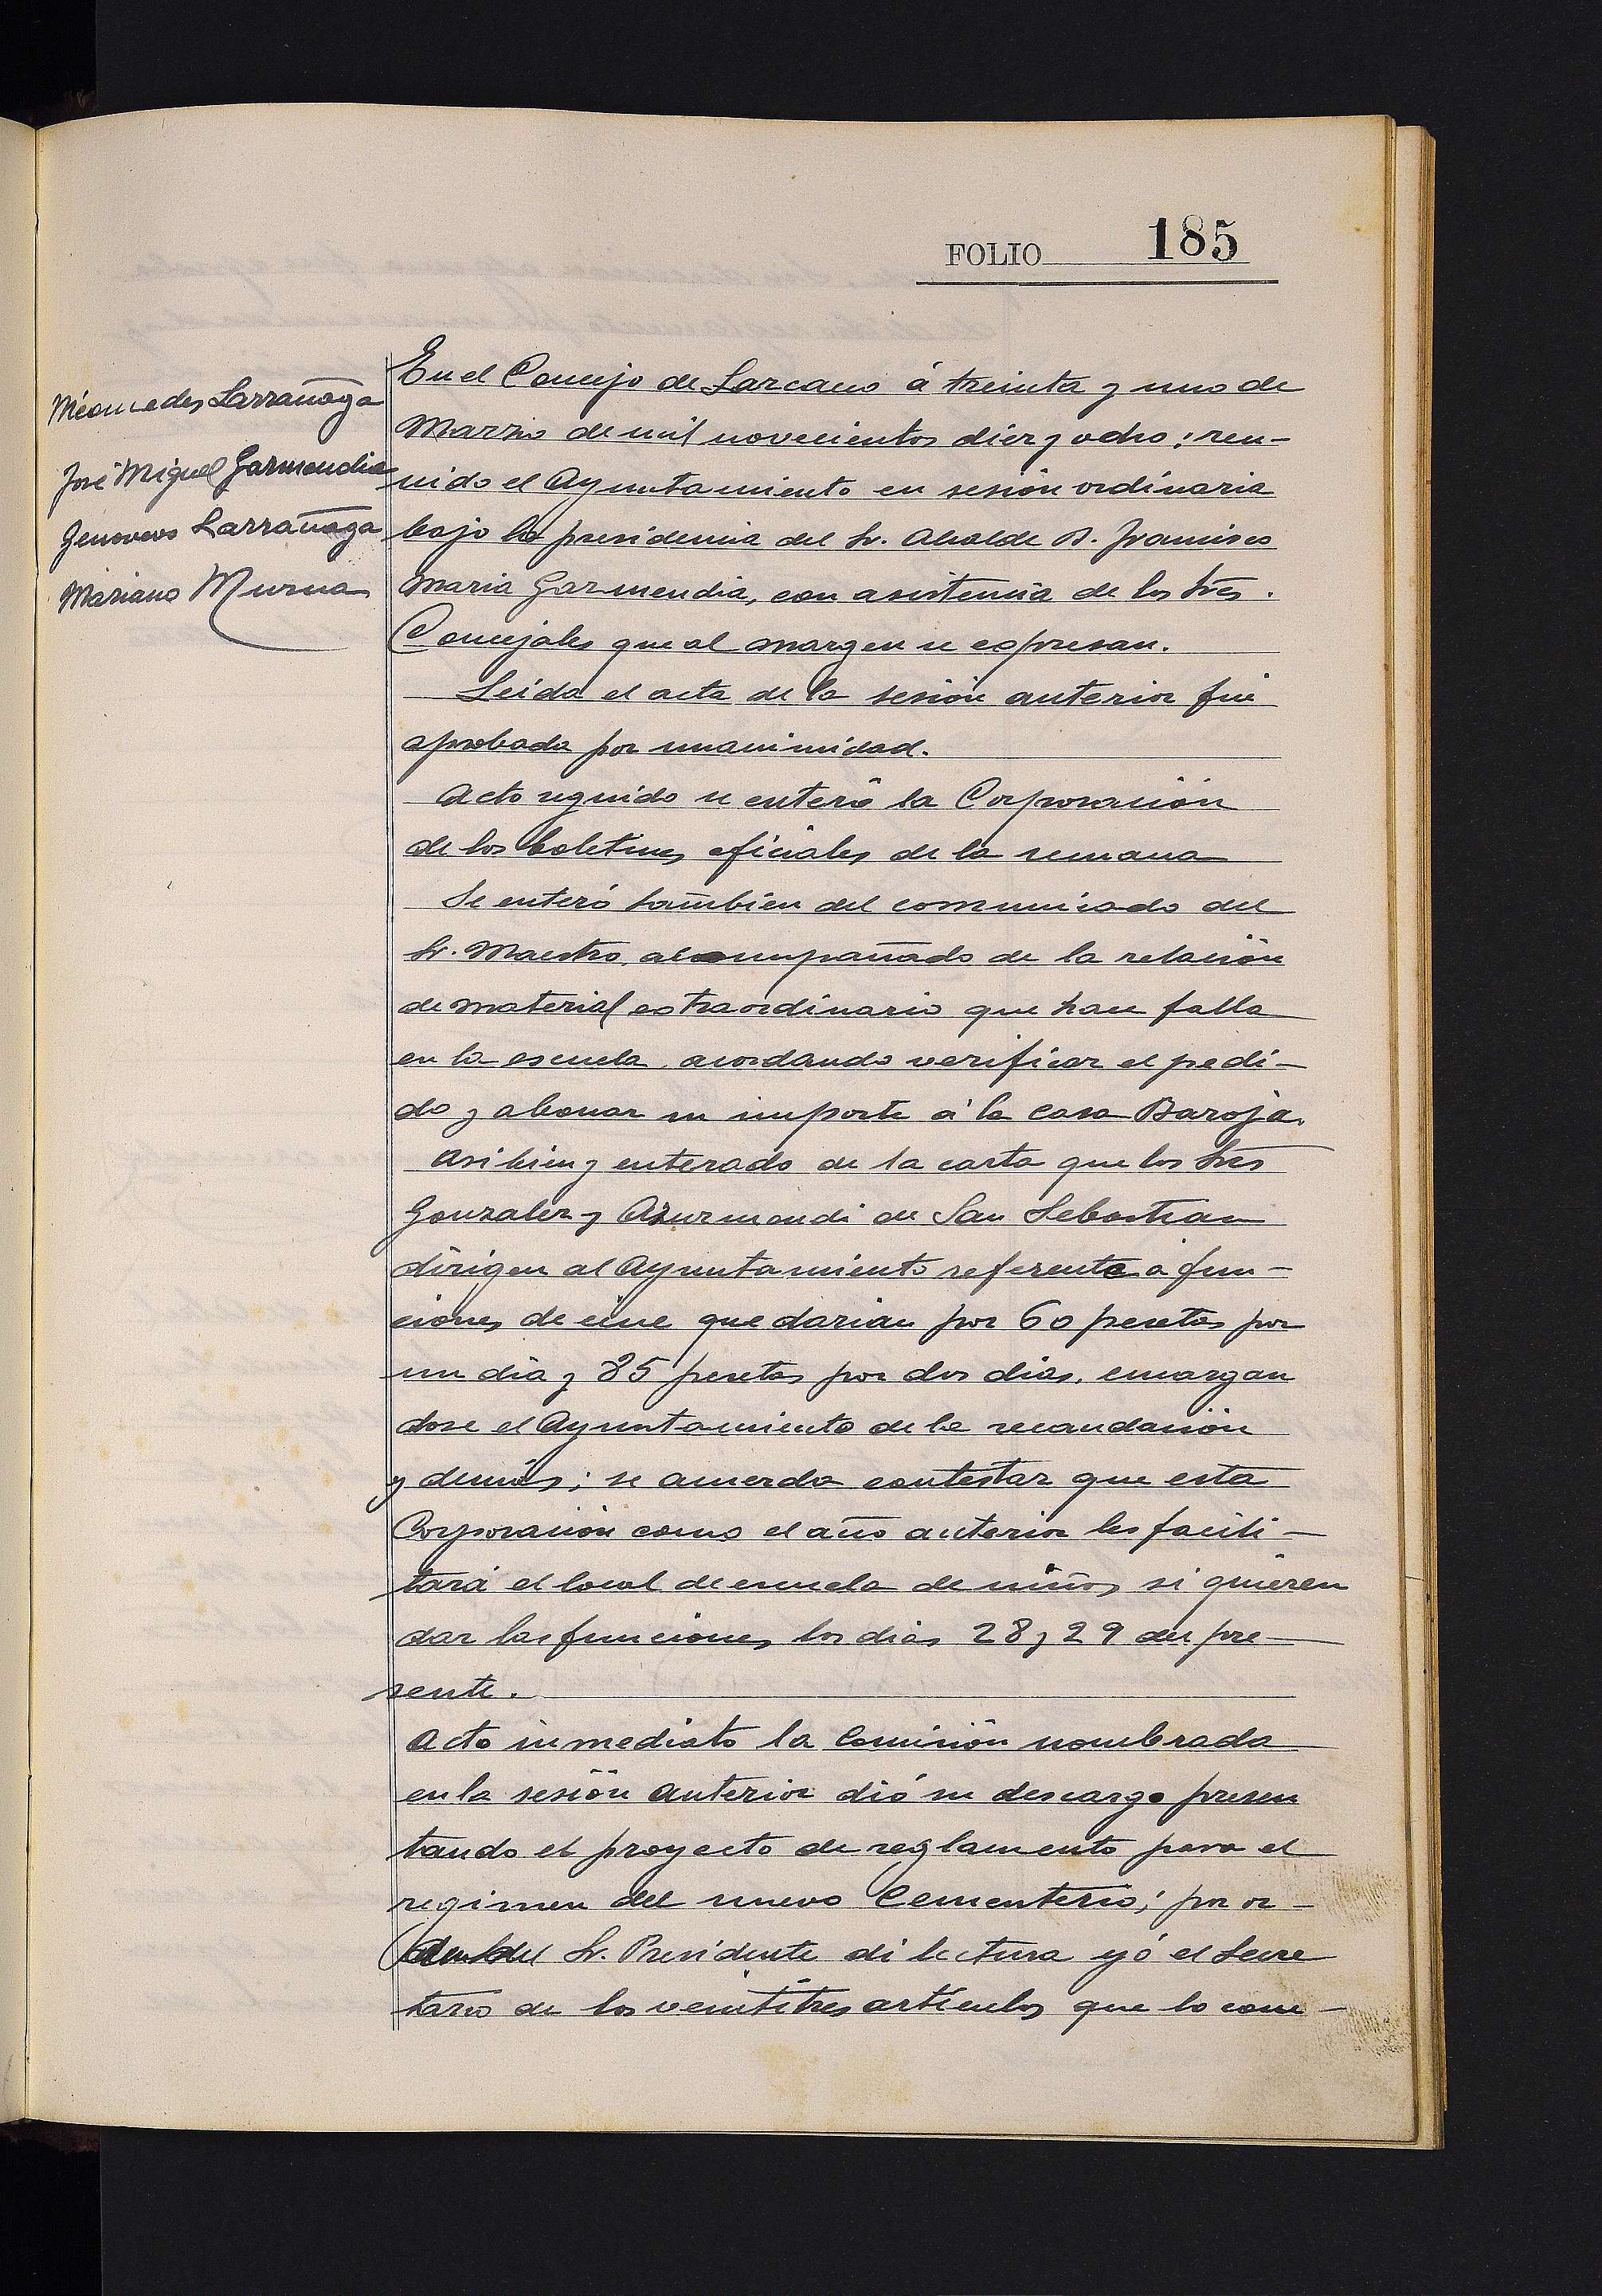 FOLIO 185
Nicomedes Larrañaga
José Miguel Garmendia
Genovevo Larrañaga
Mariano Murua
En el Concejo de Larcano á treinta y uno de
Marzo de mil novecientos diez y ocho; reu-
nido el Ayuntamiento en sesión ordinaria
bajo la presidencia del Sr. Alcalde D. Francisco
Maria Garmendia, con asistencia de los Sres.
Concejales que al margen se espresan.
Leida el acta de la sesión anterior fué
aprobada por unanimidad.
Acto seguido se enteró la Corporación
de los boletines oficiales de la semana
Se enteró tambien del comunicado del
Sr. Maestro, acompañado de la relación
de material extraordinario que hace falta
en la escuela, acordando verificar el pedi-
do y abonar su importe á la casa Baroja.
Asi bien y enterado de la carta que los Sres
Gonzalez y Azurmendi de San Sebastian
dirigen al Ayuntamiento referente a fun-
ciones de cine que darian por 60 pesetas por
un dia y 85 pesetas por dos dias, encargan
dose el Ayuntamiento de la recaudación
y demás; se acuerda contestar que esta
Corporación como el año anterior les facili-
tará el local de escuela de niños si quieren
dar las funciones los dias 28 y 29 del pre-
sente.
Acto inmediato la Comisión nombrada
en la sesión anterior dió su descargo presen
tando el proyecto de reglamento para el
regimen del nuevo Cementerio; por or-
den del Sr. Presidente di lectura yó el Secre
tario de los veintitres artículos que lo com-